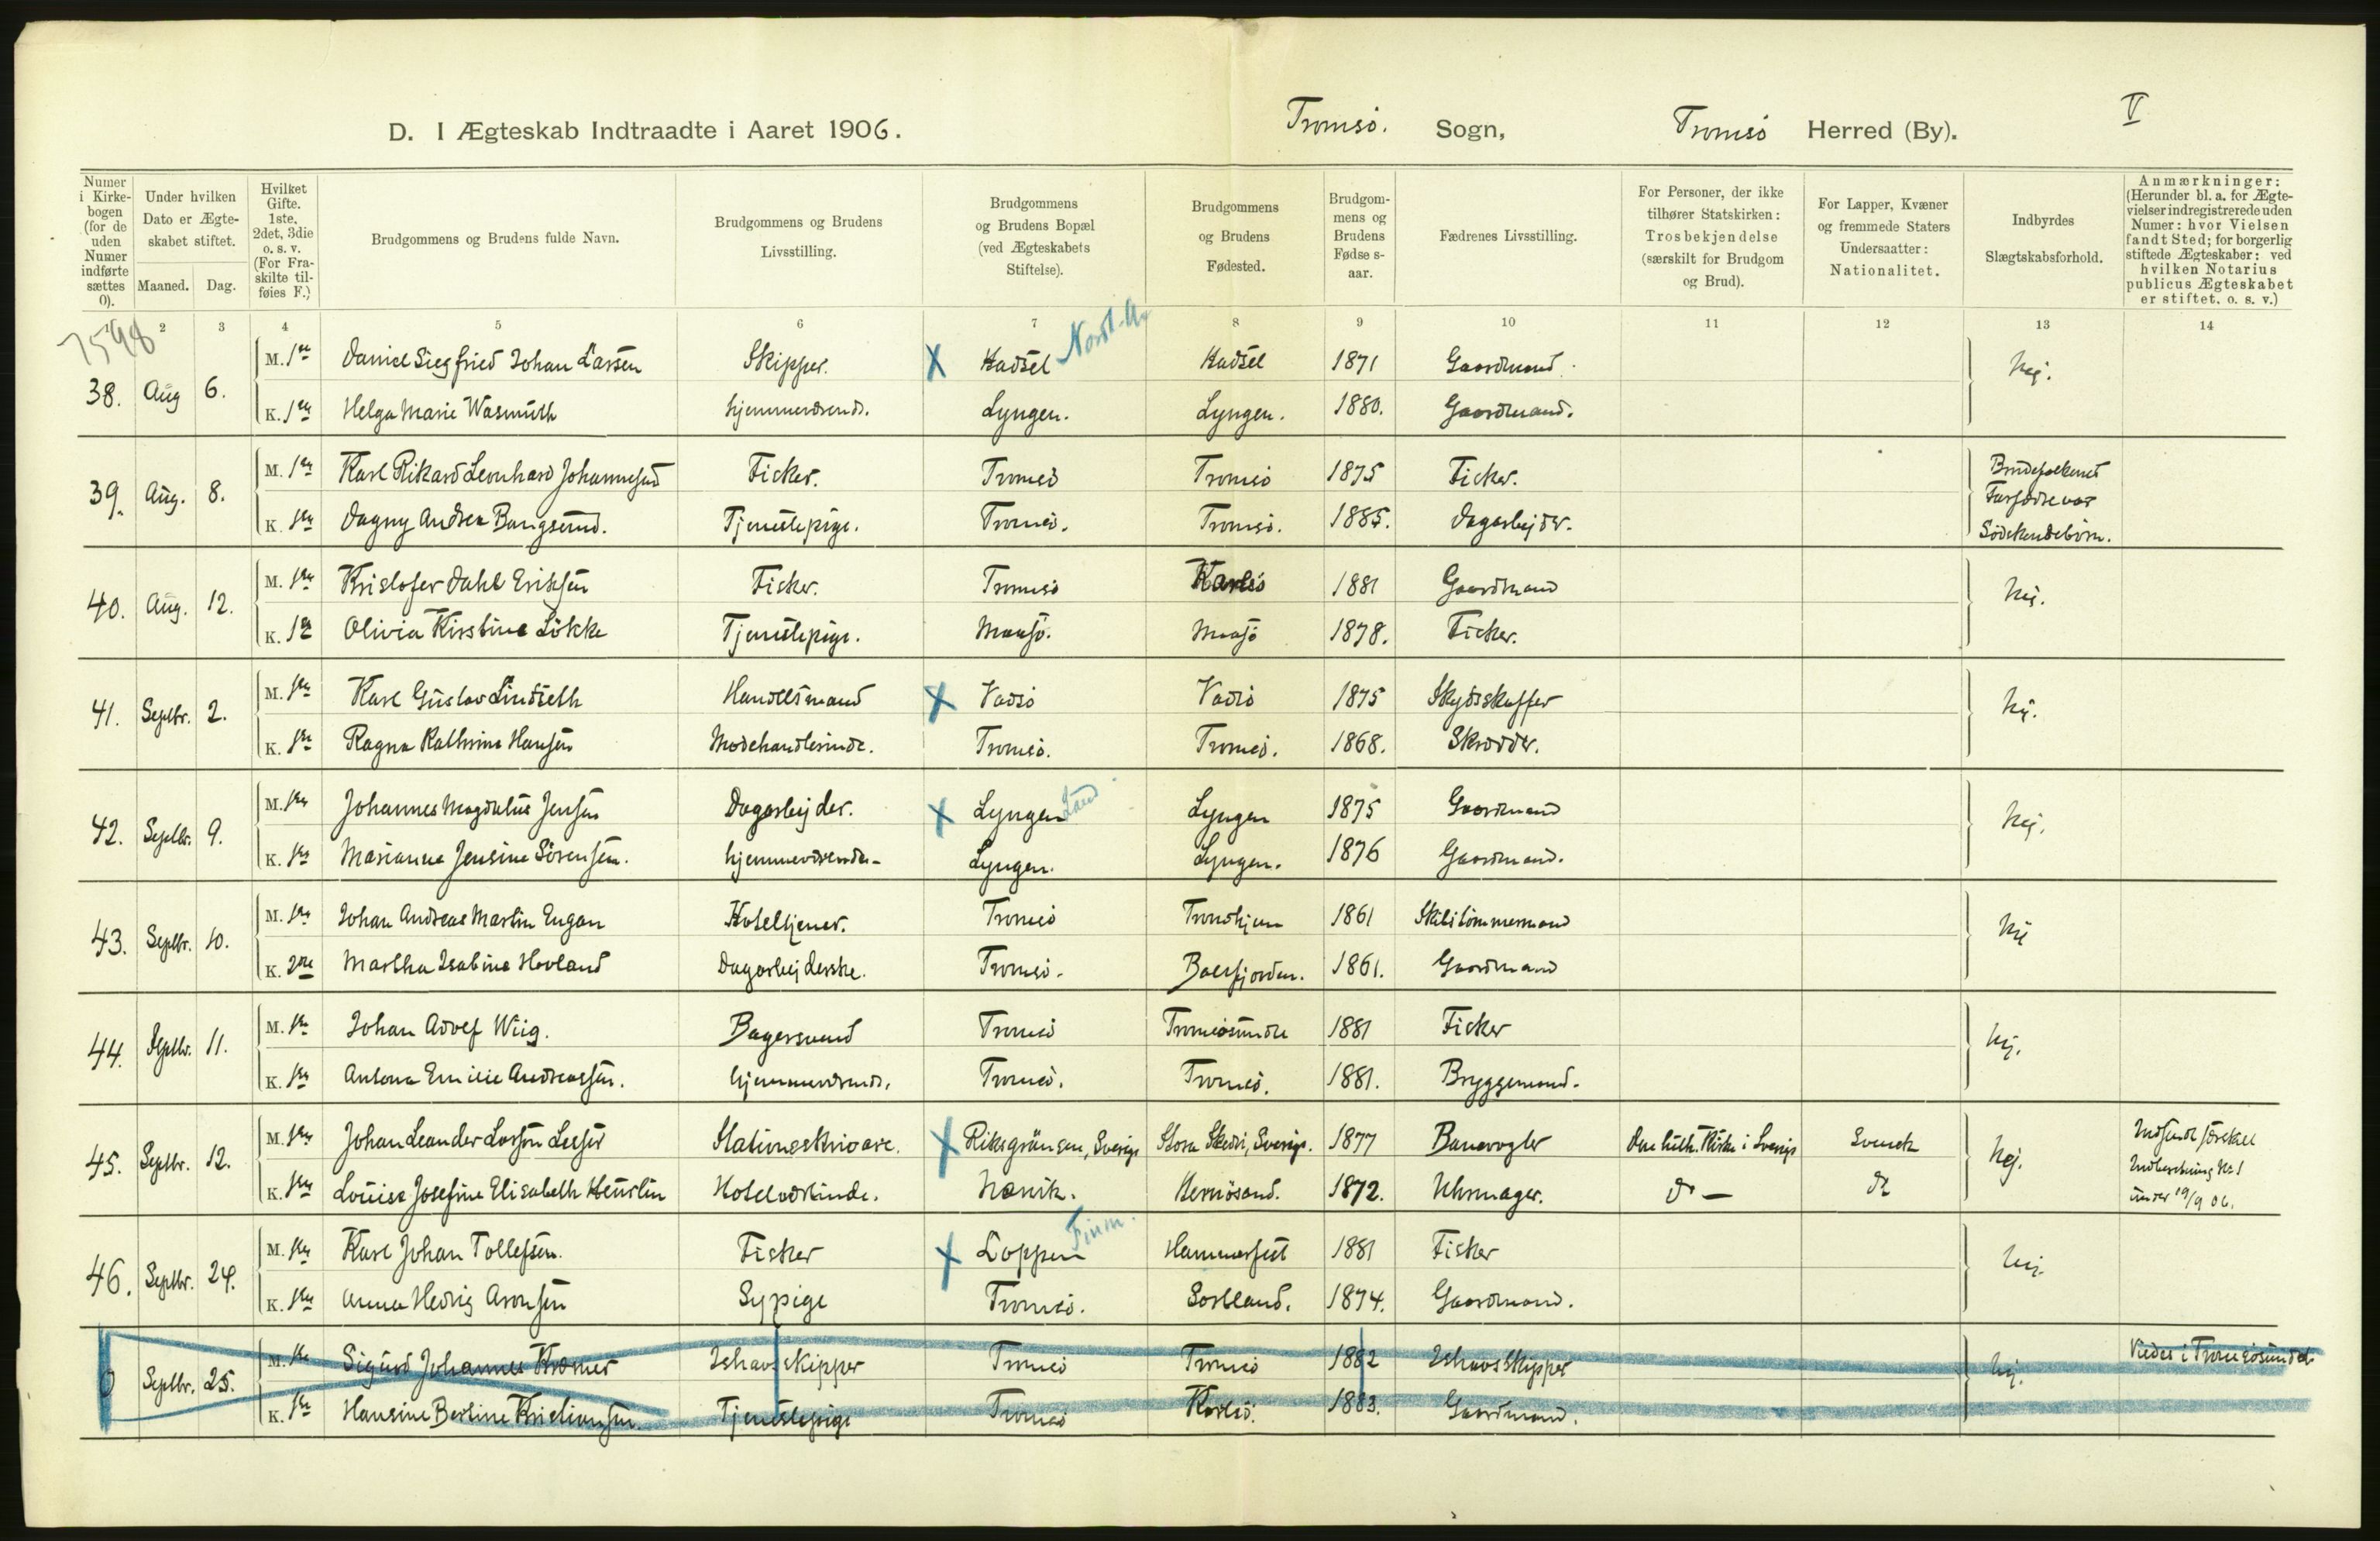 Tromsö. Sogn, Tromsö Herred (By). V
D. I Ægteskab Indtraadte i Aaret 1906.
Numer i Kirke-bogen (for de uden Numer indførte sættes 0).
Under hvilken Dato er Ægte-skabet stiftet.
Maaned. Dag.
Hvilket Gifte. 1ste, 2det, 3die o. s. v. (For Fra-skilte til-føies F.)
Brudgommens og Brudens fulde Navn.
Brudgommens og Brudens Livsstilling.
Brudgommens og Brudens Bopæl (ved Ægteskabets Stiftelse).
Brudgommens og Brudens Fødested.
Brudgom-mens og Brudens Fødse s-aar.
Fædrenes Livsstilling.
For Personer, der ikke tilhører Statskirken: Trosbekjendelse (særskilt for Brudgom og Brud).
For Lapper, Kvæner og fremmede Staters Undersaatter: Nationalitet.
Indbyrdes Slægtskabsforhold.
Anmærkninger: (Herunder bl. a. for Ægte-vielser indregistrerede uden Numer: hvor Vielsen fandt Sted; for borgerlig stiftede Ægteskaber: ved hvilken Notarius publicus Ægteskabet er stiftet. o. s. v.)
2 3 4 5 6 7 8 9 10 11 12 13 14
7598
38. Aug 6. M. 1ste Daniel Siegfried Johan Larsen Skipper. X Hadsel Nordl. Hadsel 1871 Gaardmand. Nej.
K. 1ste Helga Marie Wasmuth hjemmeværende. Lyngen. Lyngen. 1880. Gaardmand.
39. Aug. 8. M. 1ste Karl Rikard Leonhard Johannesen Fisker. Tromsö Tromsö 1875 Fisker. Brudefolkenes Farfædre var Södskendebörn.
K. 1ste Dagny Andrea Bangsund. Tjenestepige. Tromsö. Tromsö. 1885. Dagarbejder.
40. Aug. 12. M. 1ste Kristofer Dahl Eriksen Fisker. Tromsö Karlsö 1881 Gaardmand Nej.
K. 1ste Olivia Kirstine Lökke Tjenestepige. Maasö. Maasö 1878. Fisker.
41. Septbr. 2. M. 1ste Karl Gustav Lindseth Handelsmand X Vadsö Vadsö 1875 Skydsskaffer Nej.
K. 1ste Ragna Kathrine Hansen Modehandlerinde. Tromsö. Tromsö. 1868. Skrædder.
42. Septbr. 9. M. 1ste Johannes Magdalus Jensen Dagarbejder. X Lyngen Land Lyngen 1875 Gaardmand Nej.
K. 1ste Marianna Jensine Sörensen. hjemmeværende. Lyngen. Lyngen. 1876 Gaardmand.
43. Septbr. 10. M. 1ste Johan Andreas Martin Engan Hoteltjener. Tromsö Trondhjem 1861 Skibstömmermand Nej
K. 2den Martha Isabina Hovland Dagarbejderske. Tromsö. Balsfjorden. 1861. Gaardmand
44. Septbr. 11. M. 1ste Johan Adolf Wiig. Bagersvend Tromsö Tromsösundet 1881 Fisker Nej.
K. 1ste Antona Emilie Andreassen. hjemmeværende. Tromsö. Tromsö. 1881. Bryggemand.
45. Septbr. 12. M. 1ste Johan Leander Larsson Lesser Stationsskrivare. X Riksgränsen, Sverige Stora Skedvi, Sverige. 1877 Banevogter Den luth. Kirke i Sverige Svensk Nej. Indsendt særskilt Indberetning No 1 under 19/9 06.
K. 1ste Louise Josefine Elisabeth Heurlin Hotelværtinde. Narvik. Hernösand. 1872. Uhrmager. do — do
46. Septbr. 24. M. 1ste Karl Johan Tollefsen. Fisker X Loppen Finm. Hammerfest 1881 Fisker Nej.
K. 1ste Anna Hedvig Aronsen Sypige Tromsö. Sortland. 1874. Gaardmand.
0 Septbr. 25. M. 1ste Sigurd Johannes Kræmer Ishavsskipper Tromsö Tromsö 1882 Ishavsskipper Nej. Viedes i Tromsösundet.
K. 1ste Hansine Bertine Kristiansen. Tjenestepige Tromsö Karlsö. 1883. Gaardmand.